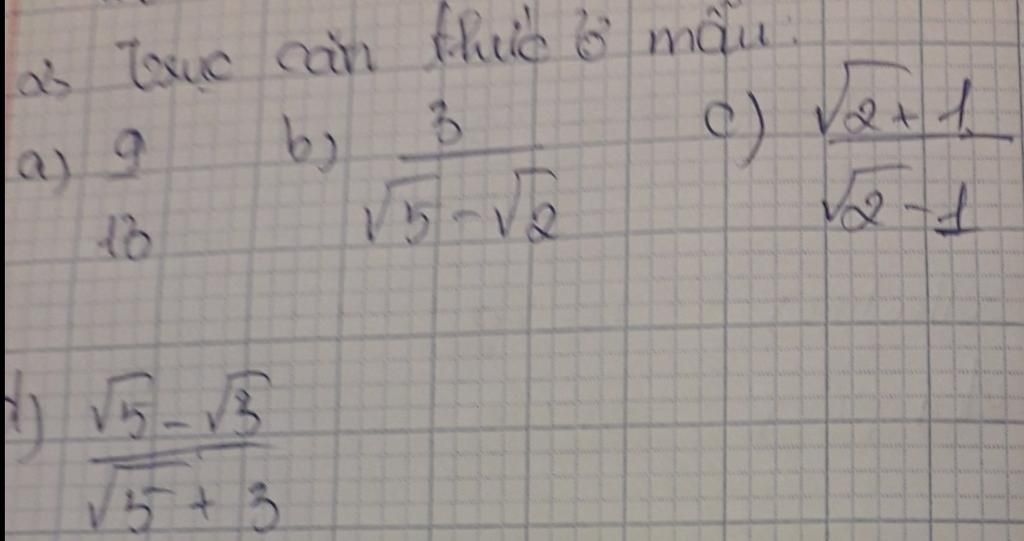 a) Trục căn thức ở mẫu:
a) 9/13 b) 3/(√5-√2) c) (√2+1)/(√2-1)
d) (√5-√3)/(√5+3)